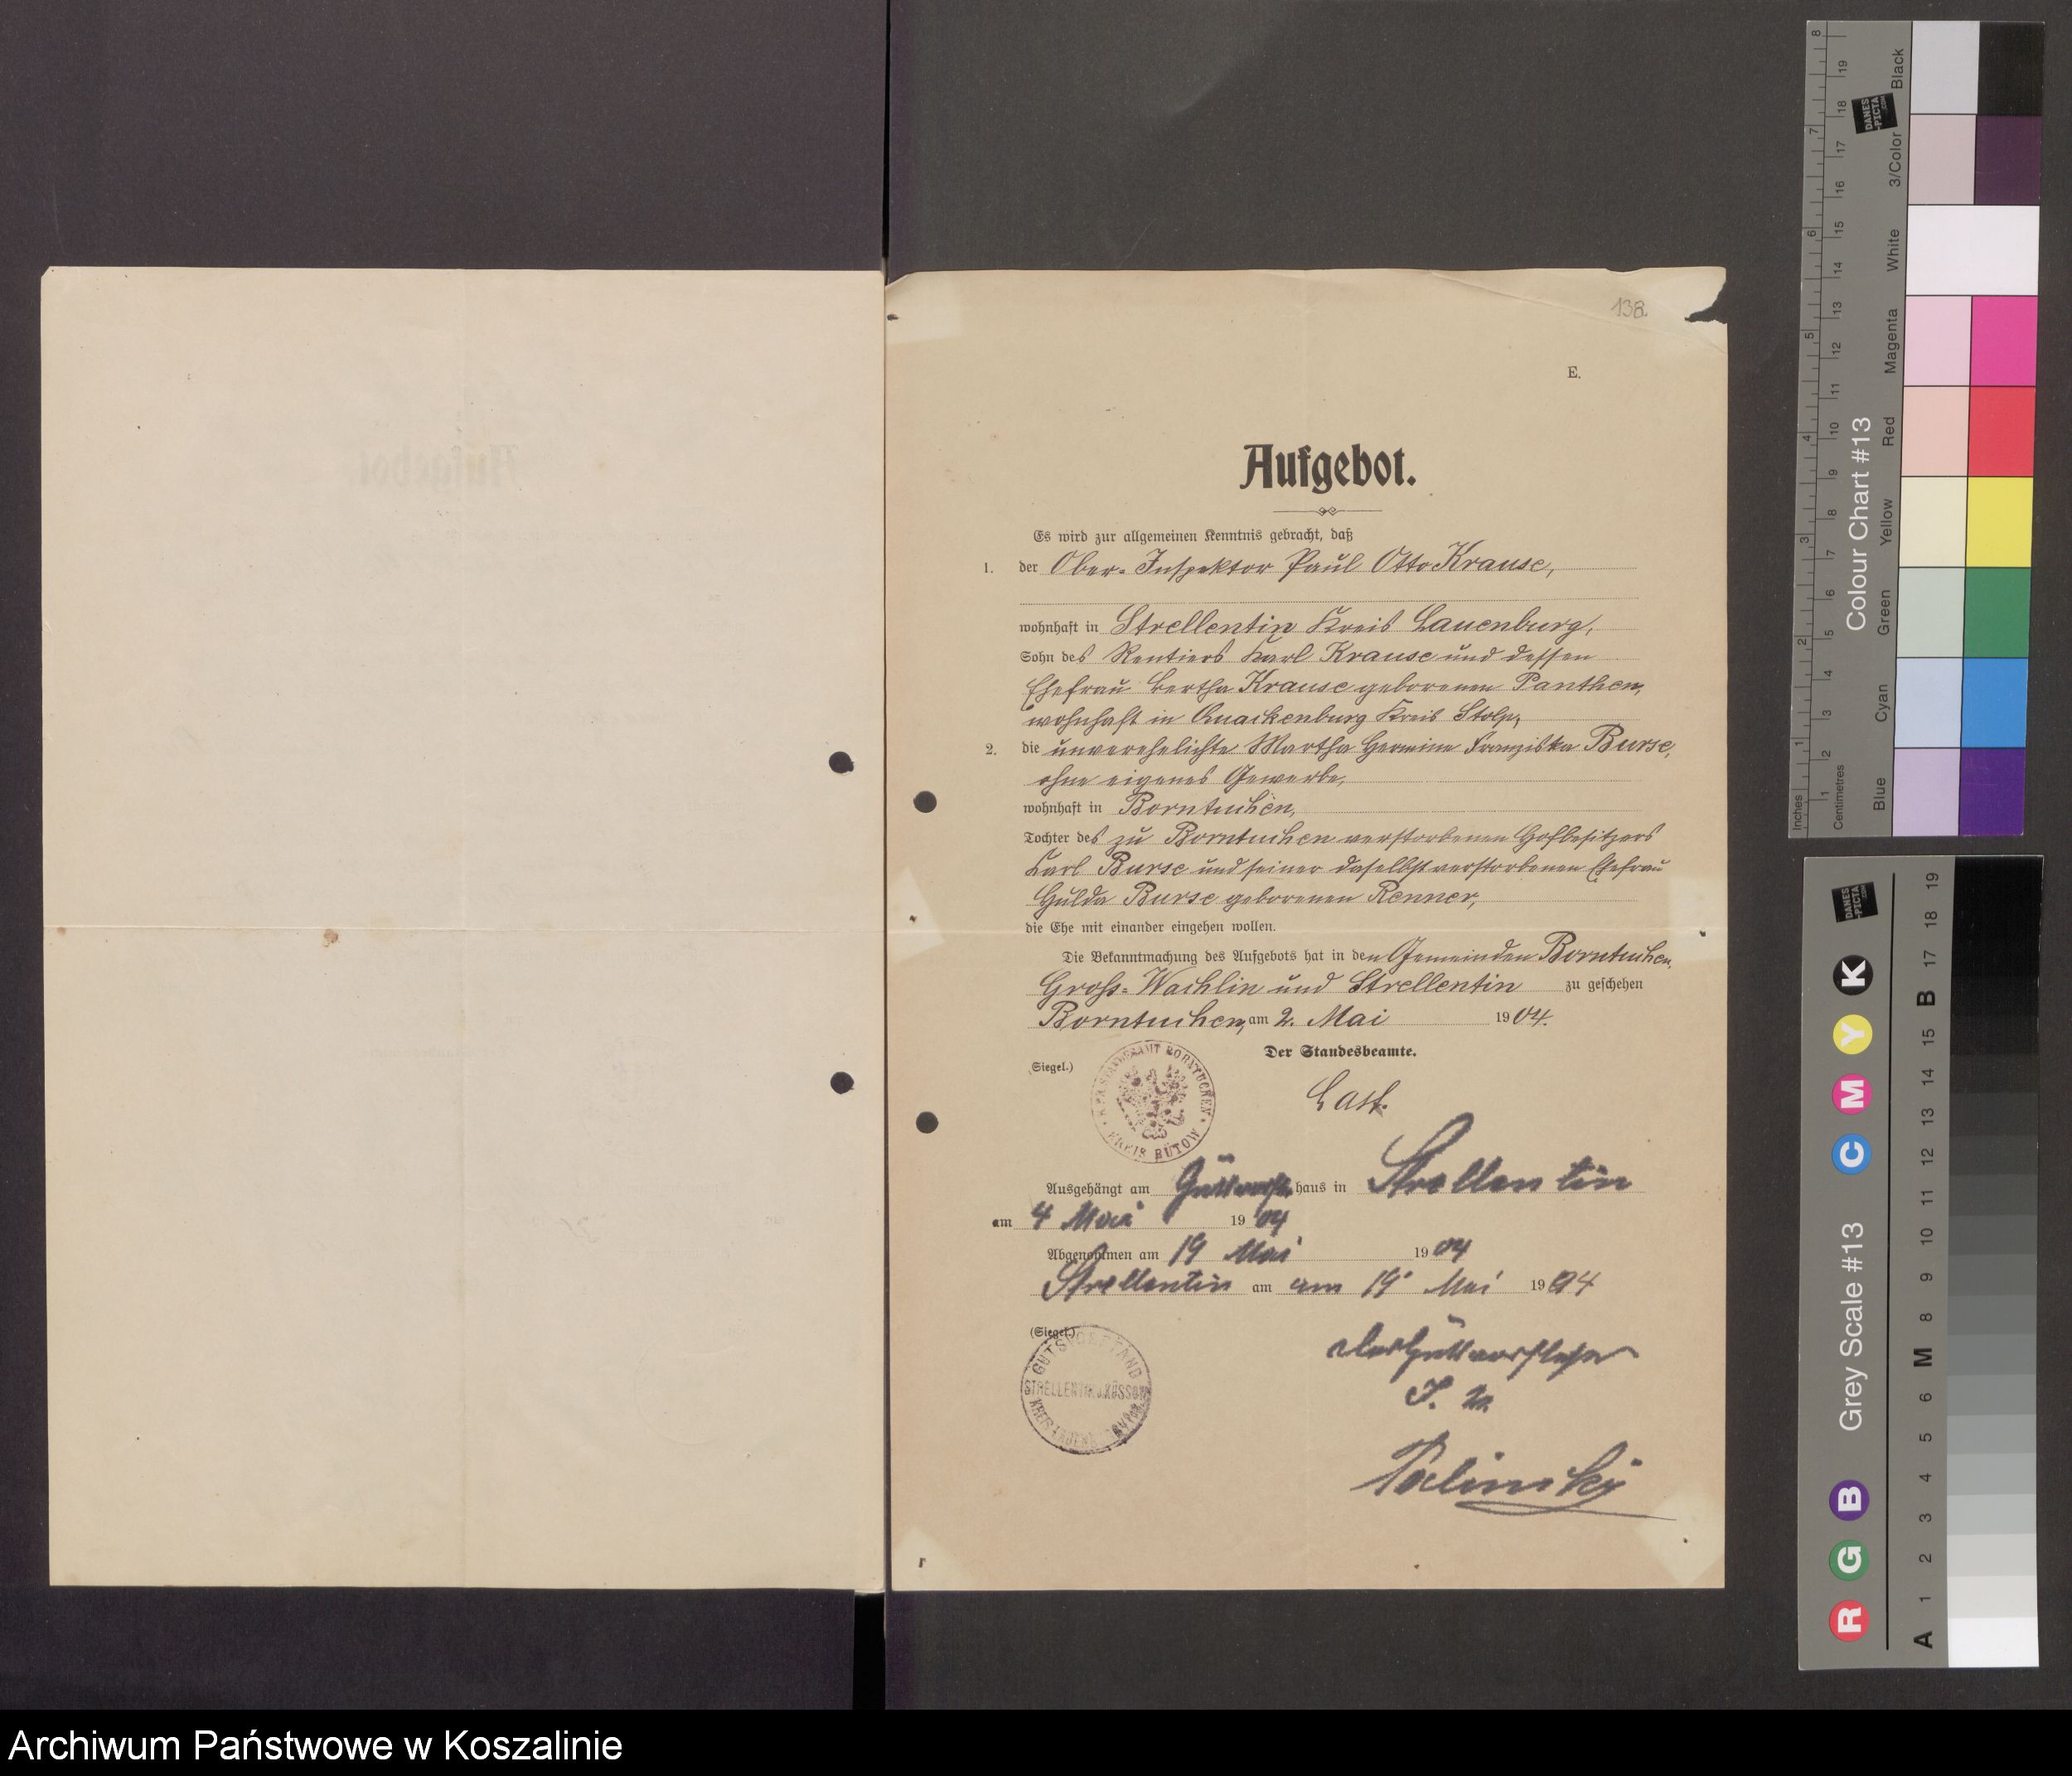 138
E.
Aufgebot.
Es wird zur allgemeinen Kenntnis gebracht, daß
1. der Ober-Inspektor Paul Otto Krause,
wohnhaft in Strellentin Kreis Lauenburg,
Sohn des Rentiers Karl Krause und dessen
Ehefrau Bertha Krause geborenen Panthen,
wohnhaft in Quackenburg Kreis Stolp,
2. die unverehelichte Martha Hermine Franziska Burse,
ohne eigenes Gewerbe,
wohnhaft in Borntuchen,
Tochter des zu Borntuchen verstorbenen Hofbesitzers
Karl Burse und seiner daselbst verstorbenen Ehefrau
Hulda Burse geborenen Renner,
die Ehe mit einander eingehen wollen.
Die Bekanntmachung des Aufgebots hat in den Gemeinden Borntuchen,
Groß-Wachlin und Strellentin zu geschehen
Borntuchen, am 2. Mai 1904.
Der Standesbeamte.
(Siegel.)
K. PR. STANDESAMT BORNTUCHEN
KREIS BÜTOW
Last.
Ausgehängt am haus in Strellentin
am 4 Mai 1904
Abgenommen am 19 Mai 1904
Strellentin am am 19 Mai 1904
(Siegel.)
GUTSVORSTAND
STRELLENTIN
KREIS LAUENB.
Der Gutsvorsteher
I. V.
Palinsky
r
Archiwum Państwowe w Koszalinie
Colour Chart #13
Inches
Centimetres
Blue
Cyan
Green
Yellow
Red
Magenta
White
3/Color
Black
DANES
-PICTA
.COM
Grey Scale #13
R G B C M Y K
A 1 2 3 4 5 6 M 8 9 10 11 12 13 14 15 B 17 18 19